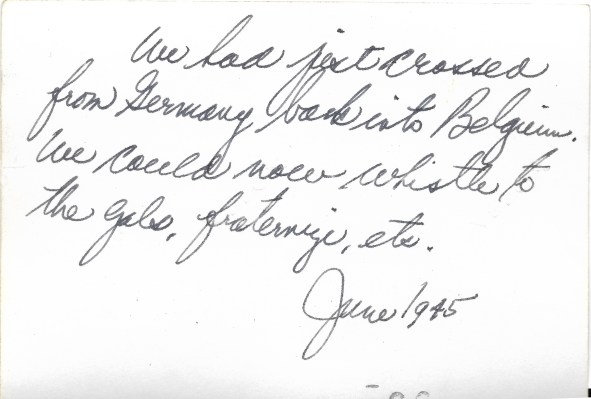 We had just crossed
from Germany back into Belgium.
We could now whistle to
the gals, fraternize, etc.
June 1945